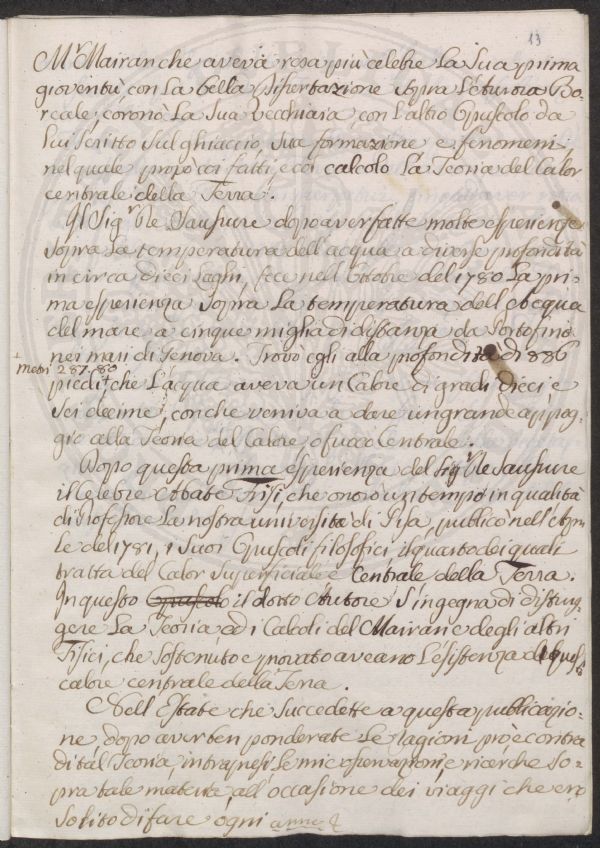 13
Mr. Mairan che aveva resa più celebre la Sua prima
gioventù con la bella Dissertazione sopra l'Aurora Bo-
reale, coronò la Sua vecchiaia con l'altro Opuscolo da
lui scritto sul ghiaccio, sua formazione e fenomeni,
nel quale provò coi fatti, e coi calcolo la Teoria del Calor
centrale della Terra.
Il Sigr. de Sausure dopo aver fatte molte esperienze
sopra la temperatura dell'acqua a diverse profondità
in circa dieci Laghi, fece nell'Ottobre del 1780 la pri-
ma esperienza sopra la temperatura dell'Acqua
del mare a cinque miglia di distanza da Portofino
nei mari di Genova. Trovò egli alla profondità di 886
+ Metri 287.80
piedi,+ che l'acqua aveva un Calore di gradi dieci e
sei decime, con che veniva a dare un grande appog-
gio alla Teoria del Calore o fuoco Centrale.
Dopo questa prima esperienza del Sigr. de Sausure
il celebre Abate Frisi, che onorò un tempo in qualità
di Professore la nostra università di Pisa, publicò nell'Apri
le del 1781, i suoi Opuscoli filosofici il quarto dei quali
tratta del Calor superficiale e Centrale della Terra.
In questo Opuscolo il dotto Autore s'ingegna di distrug-
gere la Teoria ed i Calcoli del Mairan e degli altri
Fisici, che sostenuto e provato aveano l'esistenza di quest
calore centrale della Terra.
Nell'Estate che succedette a questa publicazio-
ne, dopo aver ben ponderate le ragioni prò e contra
di tal Teoria, intrapresi le mie osservazioni e ricerche so-
pra tale materia, all'occasione dei viaggi che ero
solito di fare ogni anno